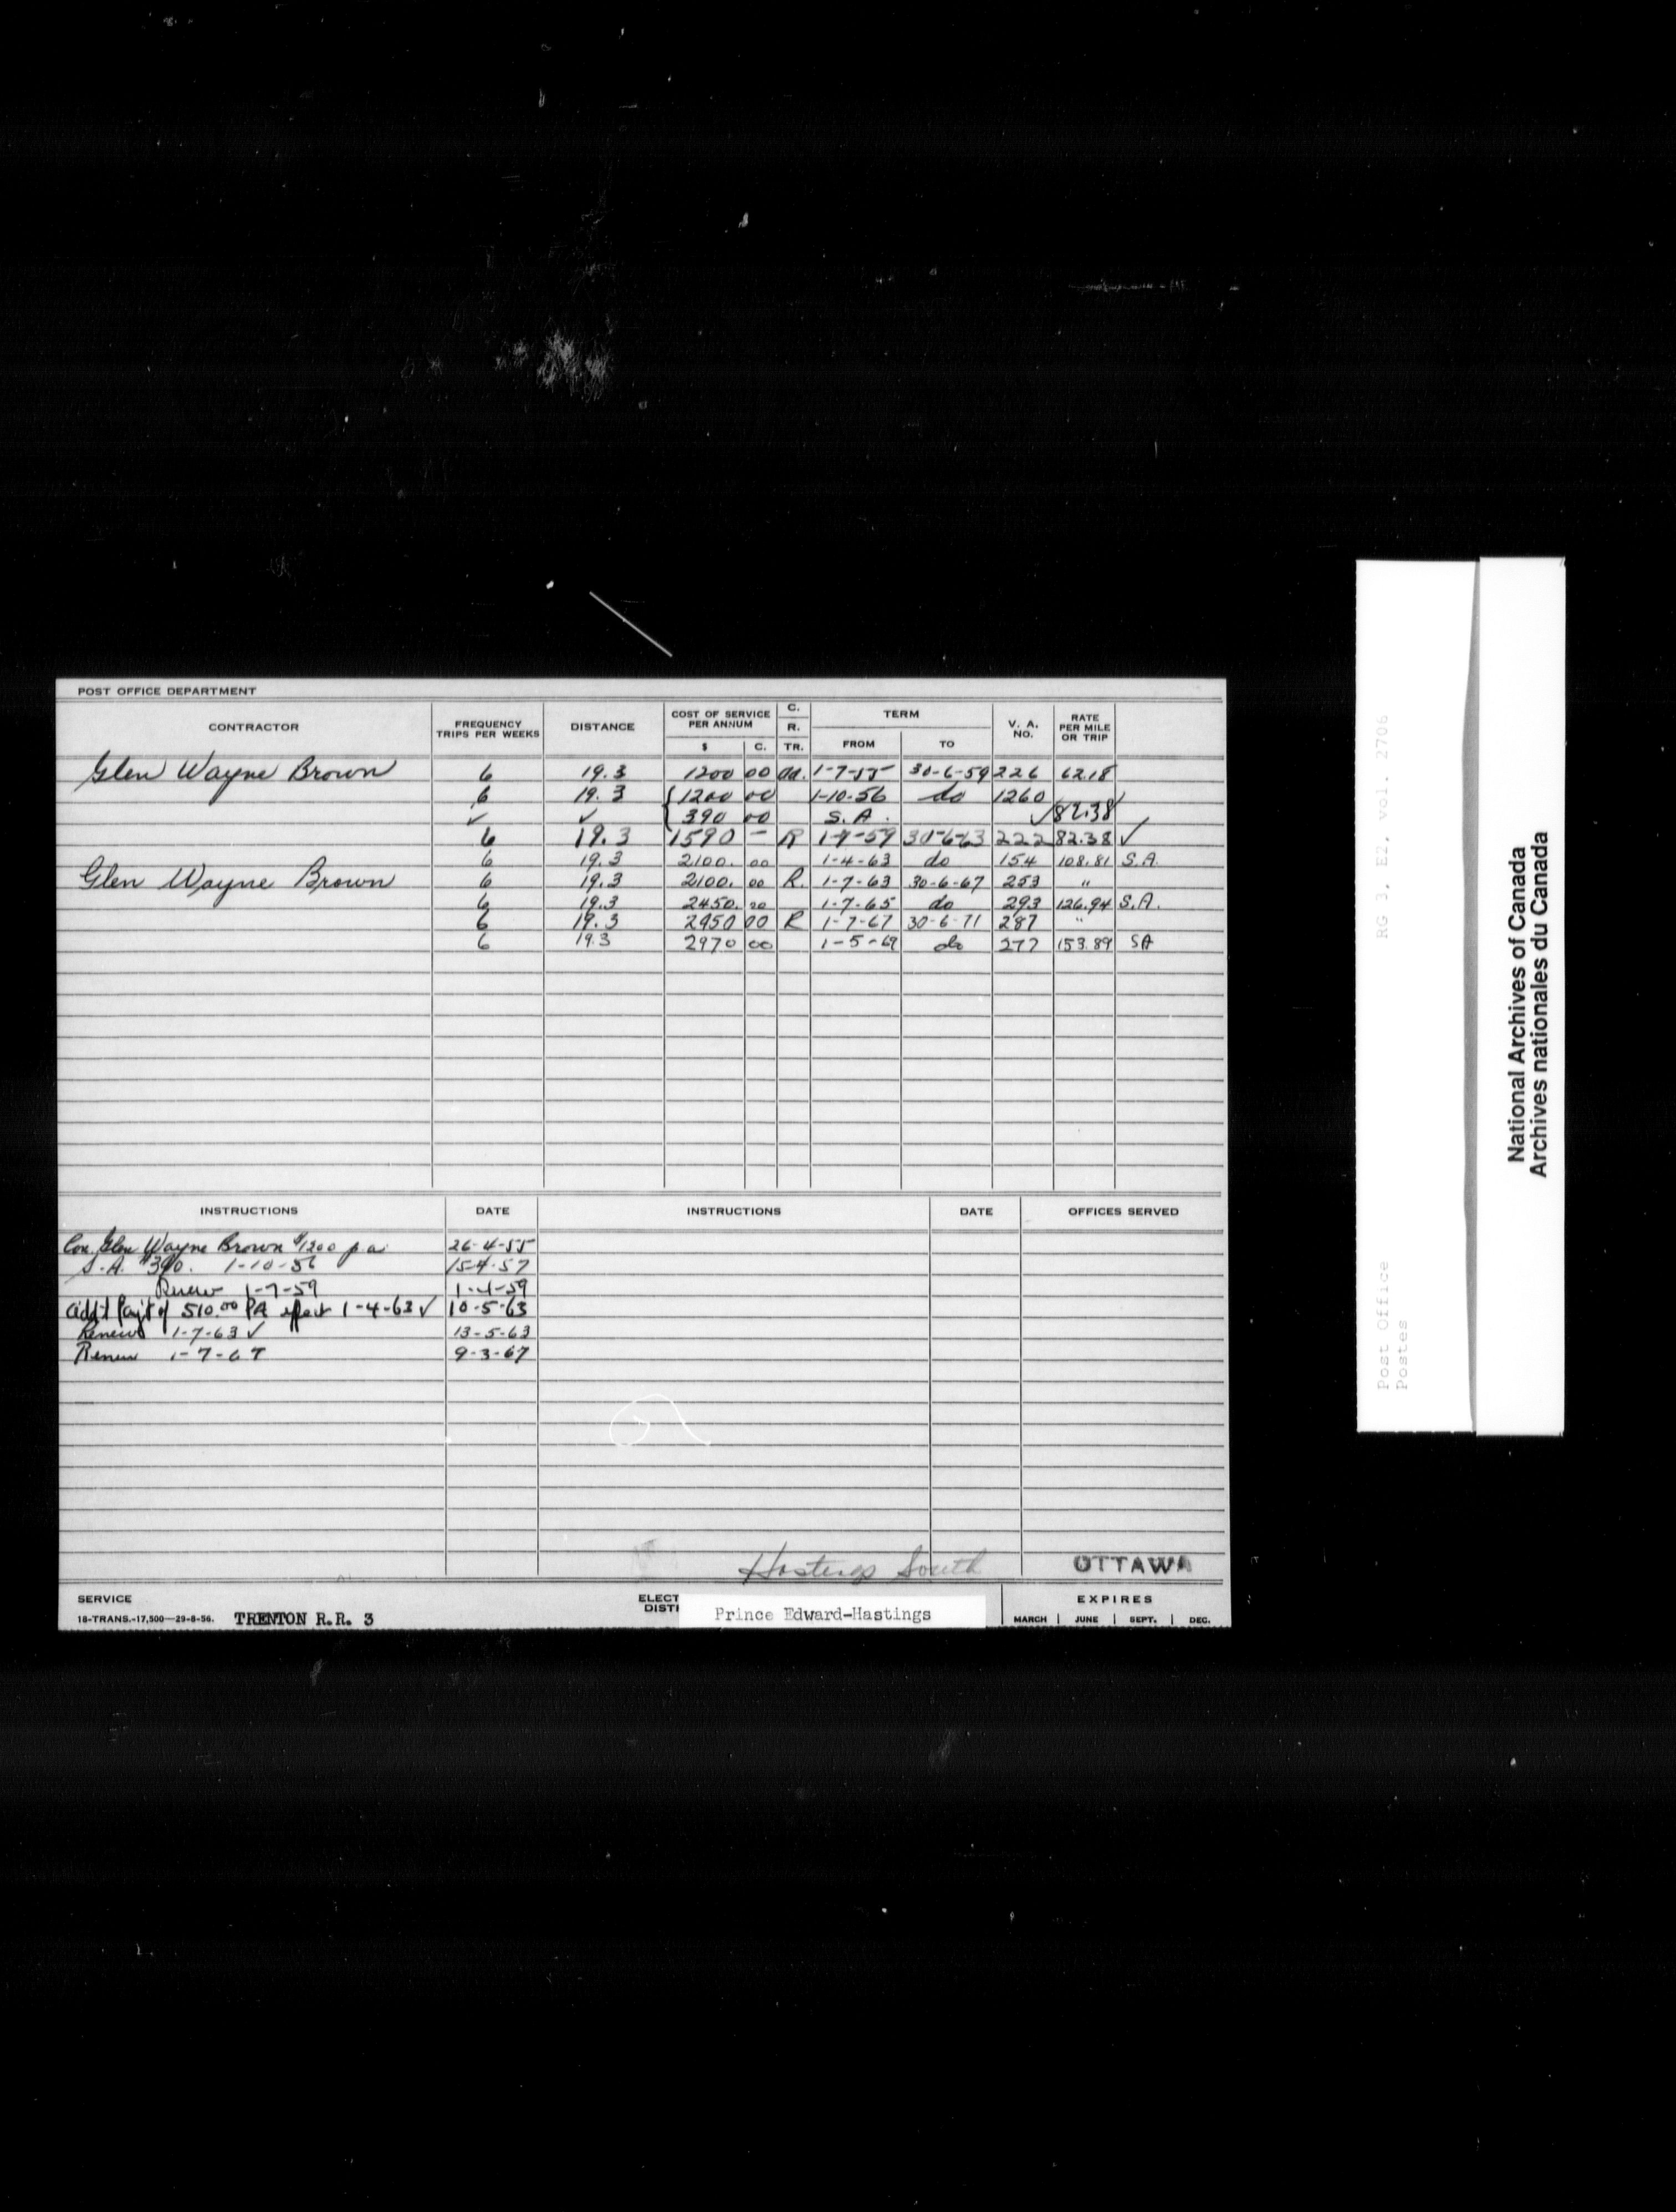 POST OFFICE DEPARTMENT
CONTRACTOR FREQUENCY TRIPS PER WEEKS DISTANCE COST OF SERVICE PER ANNUM $ C. C. R. TR. TERM FROM TO V. A. NO. RATE PER MILE OR TRIP
Glen Wayne Brown 6 19.3 1200 00 1-7-55 30-6-59 226 62.18
6 19.3 { 1200 00 1-10-56 do 1260
✓ ✓ { 390 00 S.A. ✓ 82.38 ✓
6 19.3 1590 – R 1-7-59 30-6-63 222 82.38 ✓
6 19.3 2100. 00 1-4-63 do 154 108.81 S.A.
Glen Wayne Brown 6 19.3 2100. 00 R. 1-7-63 30-6-67 253 "
6 19.3 2450. 00 1-7-65 do 293 126.94 S.A.
6 19.3 2450 00 R 1-7-67 30-6-71 287 "
6 19.3 2970 00 1-5-69 do 277 153.89 SA
INSTRUCTIONS DATE INSTRUCTIONS DATE OFFICES SERVED
Con. Glen Wayne Brown $1200 p.a. 26-4-55
S.A. $390. 1-10-56 15-4-57
Renew 1-7-59 1-4-59
Add'l Pay't of 510.00 PA effect 1-4-63 ✓ 10-5-63
Renew 1-7-63 ✓ 13-5-63
Renew 1-7-67 9-3-67
Hastings South OTTAWA
SERVICE ELECT DISTI EXPIRES
18-TRANS.-17,500—29-8-56. TRENTON R.R. 3 Prince Edward-Hastings MARCH JUNE SEPT. DEC.
RG 3, E2, vol. 2706
Post Office
Postes
National Archives of Canada
Archives nationales du Canada